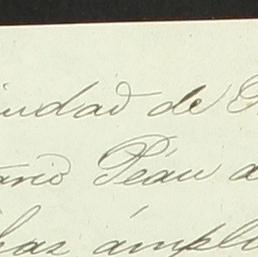 iudad de
ario Péau a
has ámpli